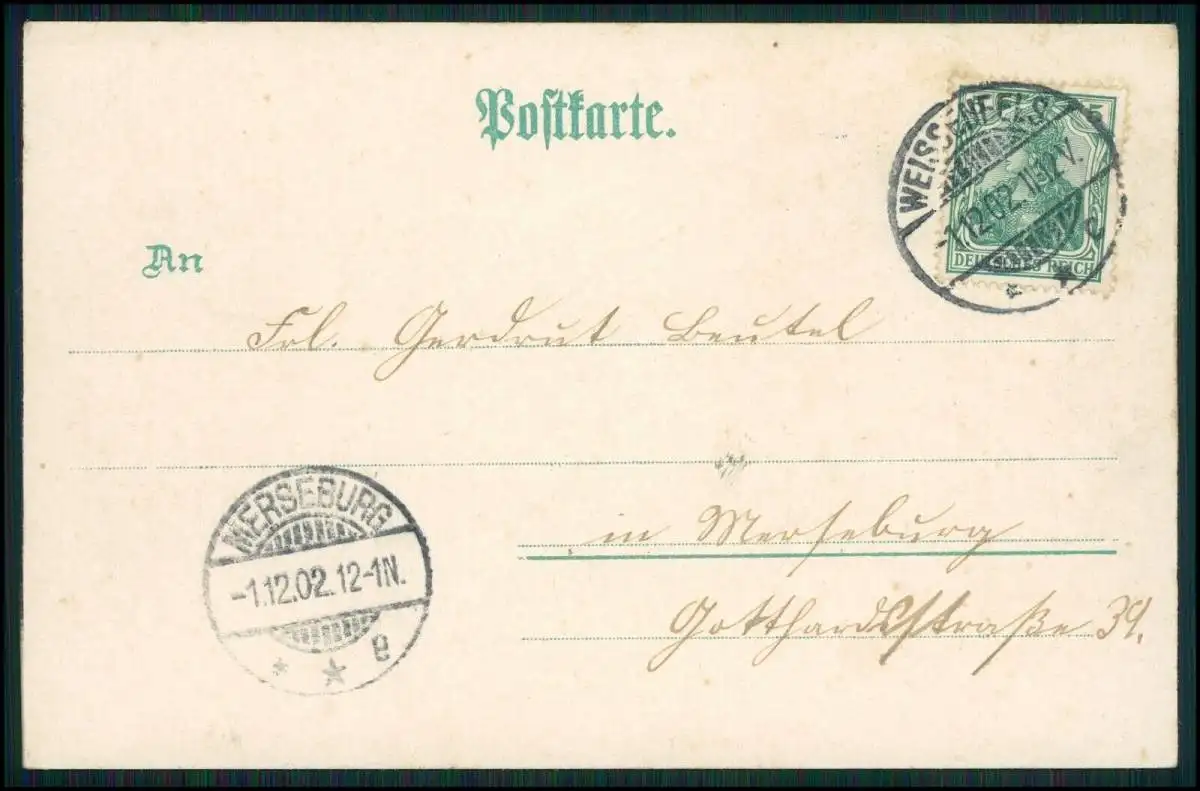 Postkarte.
WEISSENFELS
5
-1.12.02. 11-12 V.
c
DEUTSCHES REICH
An
Frl. Gerdrut Beutel
in Merseburg
Gotthardsstraße 39.
MERSEBURG
-1.12.02. 12-1N.
e